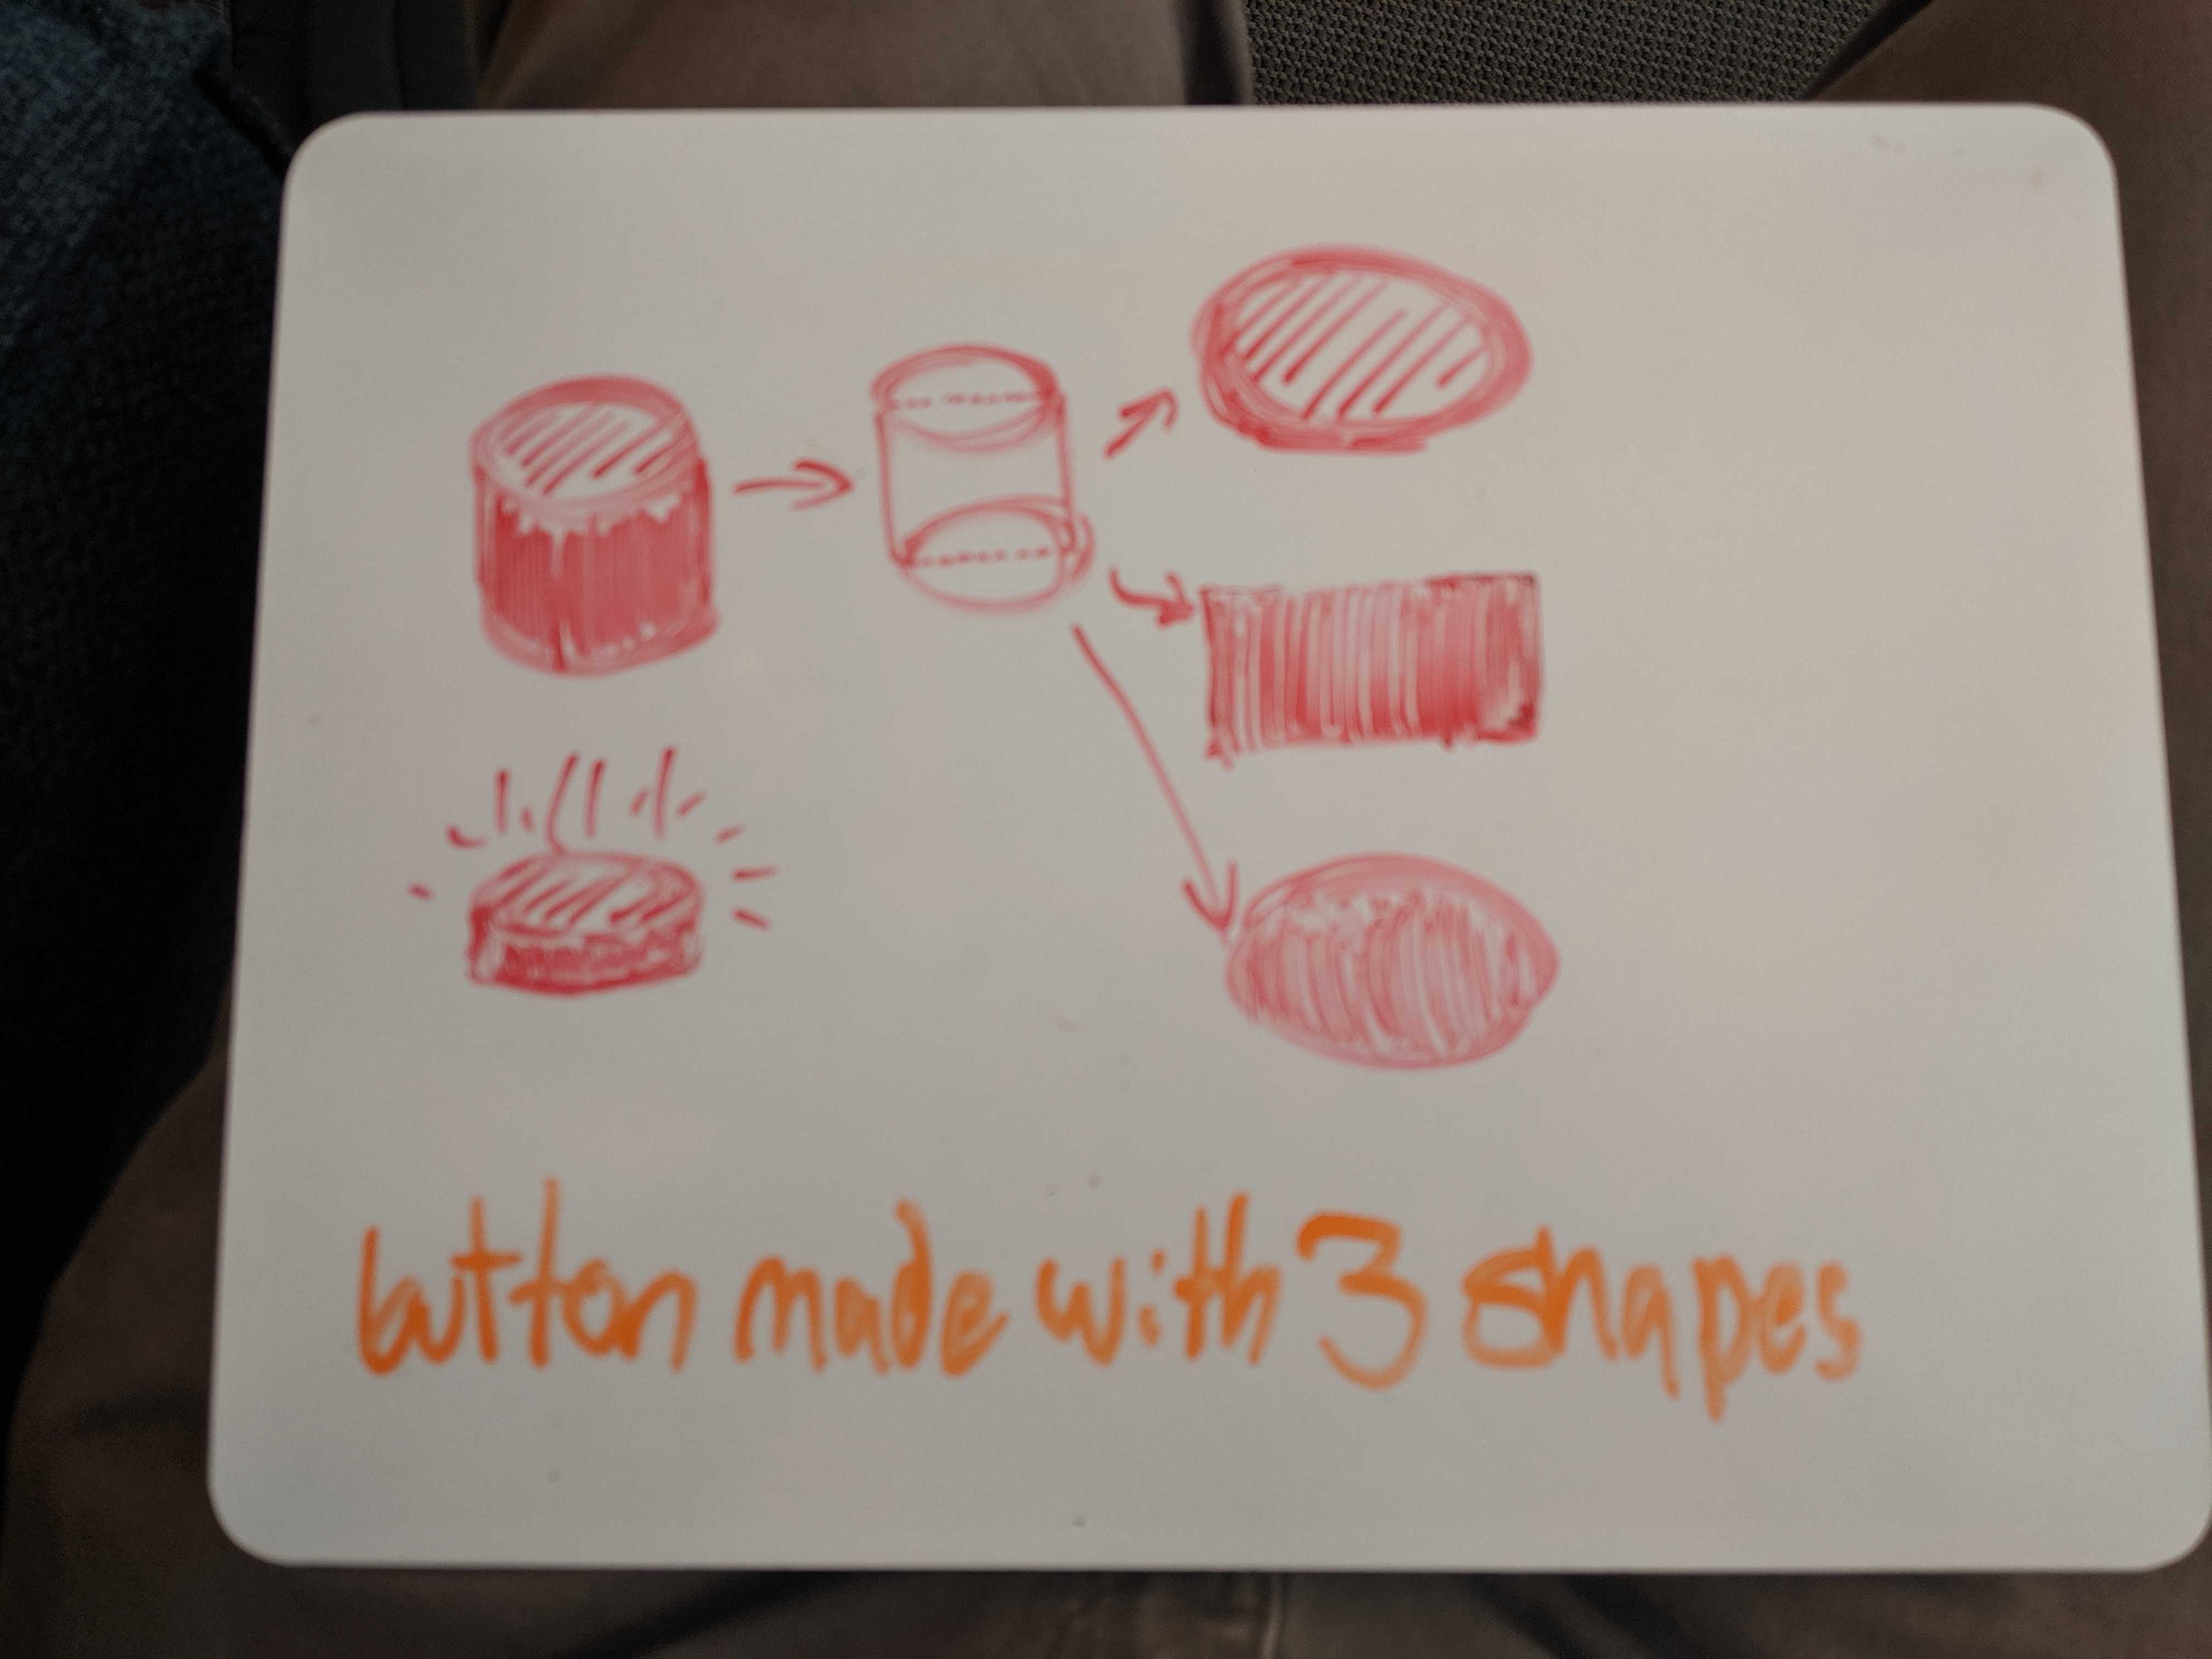 button made with 3 shapes